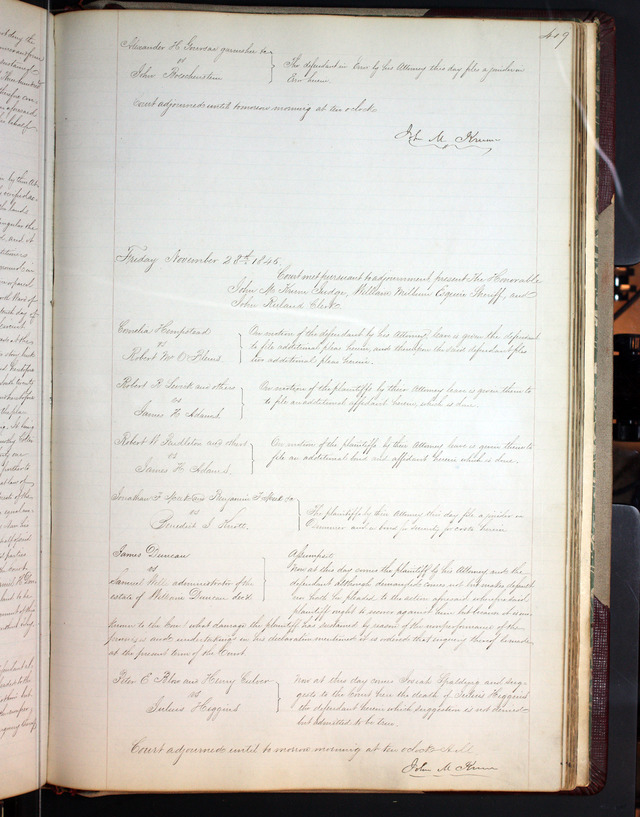 419
Alexander H. garnishee &c
vs
John
The defendant in Error by his Attorney this day files a joinder in
Error herein.
Court adjourned until tomorrow morning at ten oclock
John M. Krum
Friday November 28th 1845
Court met pursuant to adjournment, present The Honorable
John M. Krum Judge, William Milburn Esquire Sheriff, and
John Ruland Clerk.
Cornelia Hempstead
vs
Robert M. O'Blenis
On motion of the defendant by his Attorney, leave is given the defendant
to file additional pleas herein, and thereupon the said defendant files
his additional pleas herein.
Robert and others
vs
James H. Adams
On motion of the plaintiffs by their Attorney leave is given them to
to file an additional affidavit herein, which is done.
Robert and others
vs
James H. Adams.
On motion of the plaintiffs by their Attorney leave is given them to
file an additional bond and affidavit herein which is done.
Jonathan F. and Benjamin F. &c
vs
Benedict S.
The plaintiffs by their Attorney this day file a joinder in
Demurrer and a bond for security for costs herein.
James Duncan
vs
Samuel administrator of the
estate of William Duncan decd.
Assumpsit
Now at this day comes the plaintiff by his Attorney and the
defendant although demanded comes not but makes default
nor hath he pleaded to the action aforesaid wherefore said
plaintiff ought to recover against him but because it is un-
known to the Court what damage the plaintiff has sustained by reason of the nonperformance of the
promises and undertakings in his declaration mentioned it is ordered that inquiry thereof be made
at the present term of the Court.
Peter E. Blow and Henry
vs
Julius Higgins
Now at this day comes Josiah Spalding and sug-
gests to the Court here the death of Julius Higgins
the defendant herein which suggestion is not denied
but admitted to be true.
Court adjourned until to morrow morning at ten oclock A.M.
John M. Krum